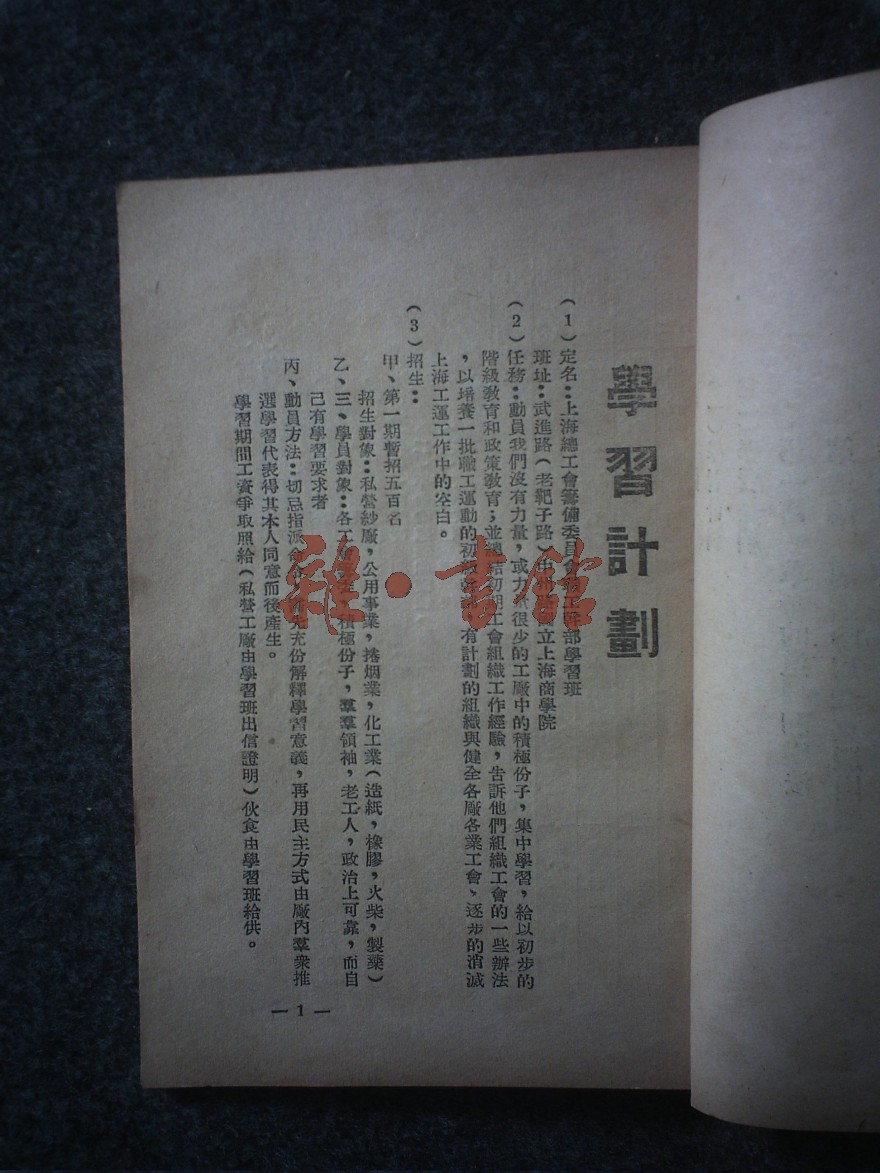 學習計劃
(1)定名：上海總工會籌備委員會職工幹部學習班
班址：武進路(老靶子路)中州路 立上海商學院
(2)任務：動員我們沒有力量，或力量很少的工廠中的積極份子，集中學習，給以初步的
階級教育和政策教育；並總結初期工會組織工作經驗，告訴他們組織工會的一些辦法
，以培養一批職工運動的初級幹部 有計劃的組織與健全各廠各業工會，逐步的消滅
上海工運工作中的空白。
(3)招生：
甲、第一期暫招五百名
招生對象：私營紗廠，公用事業，捲烟業，化工業(造紙，橡膠，火柴，製藥)
乙、三、學員對象：各工會 積極份子，羣羣領袖，老工人，政治上可靠，而自
己有學習要求者
丙、動員方法：切忌指派命令， 先充份解釋學習意義，再用民主方式由廠內羣衆推
選學習代表得其本人同意而後產生。
學習期間工資爭取照給(私營工廠由學習班出信證明)伙食由學習班給供。
— 1 —
雜·書館